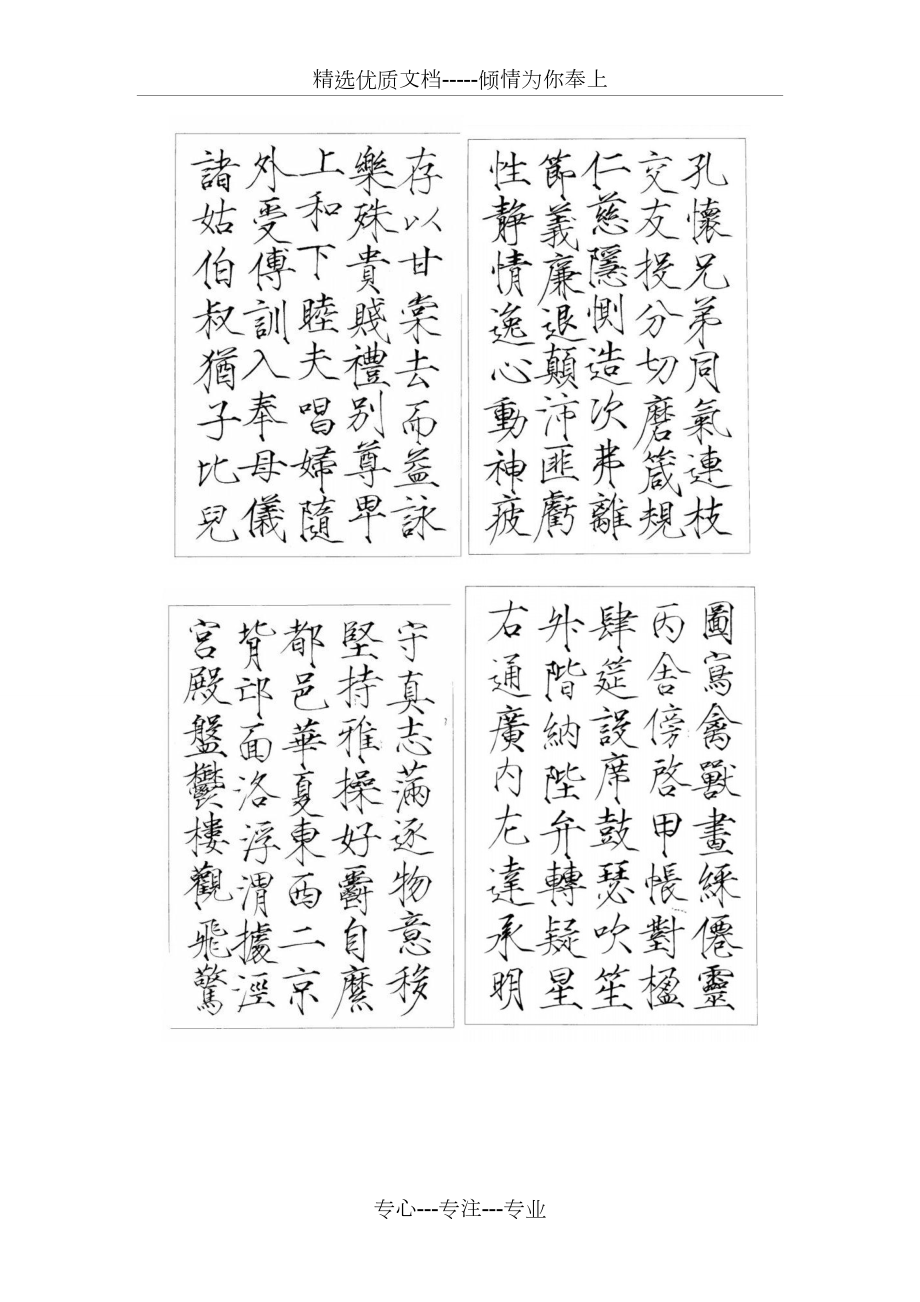 精选优质文档-----倾情为你奉上
存以甘棠去而益詠
樂殊貴賤禮別尊卑
上和下睦夫唱婦隨
外受傅訓入奉母儀
諸姑伯叔猶子比兒
孔懷兄弟同氣連枝
交友投分切磨箴規
仁慈隱惻造次弗離
節義廉退顛沛匪虧
性靜情逸心動神疲
守真志滿逐物意移
堅持雅操好爵自縻
都邑華夏東西二京
背邙面洛浮渭據涇
宮殿盤鬱樓觀飛驚
圖寫禽獸畫綵僊靈
丙舍傍啓甲帳對楹
肆筵設席鼓瑟吹笙
升階納陛弁轉疑星
右通廣內左達承明
专心---专注---专业